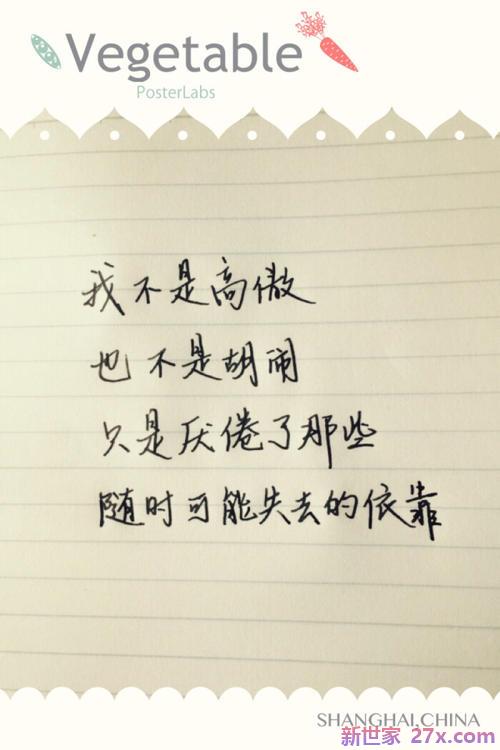 Vegetable
PosterLabs
我不是高傲
也不是胡闹
只是厌倦了那些
随时可能失去的依靠
SHANGHAI,CHINA
新世家 27x.com